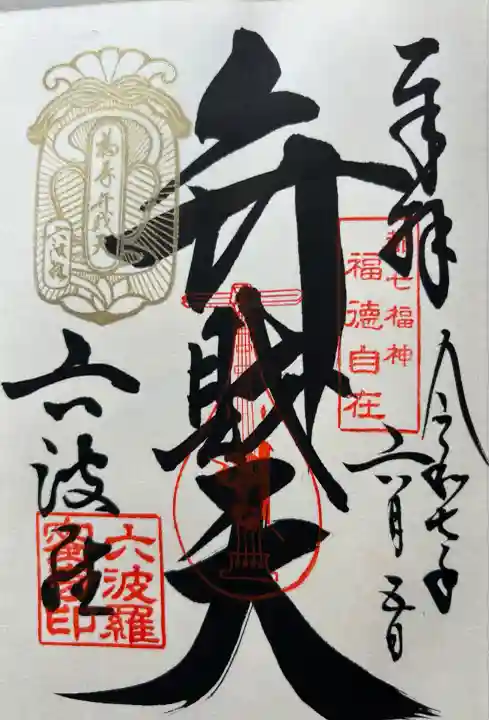 奉拝
令和七年
六月五日
都七福神
福徳自在
弁財天
福寿弁財天
六波羅
六波羅
六波羅
蜜寺印